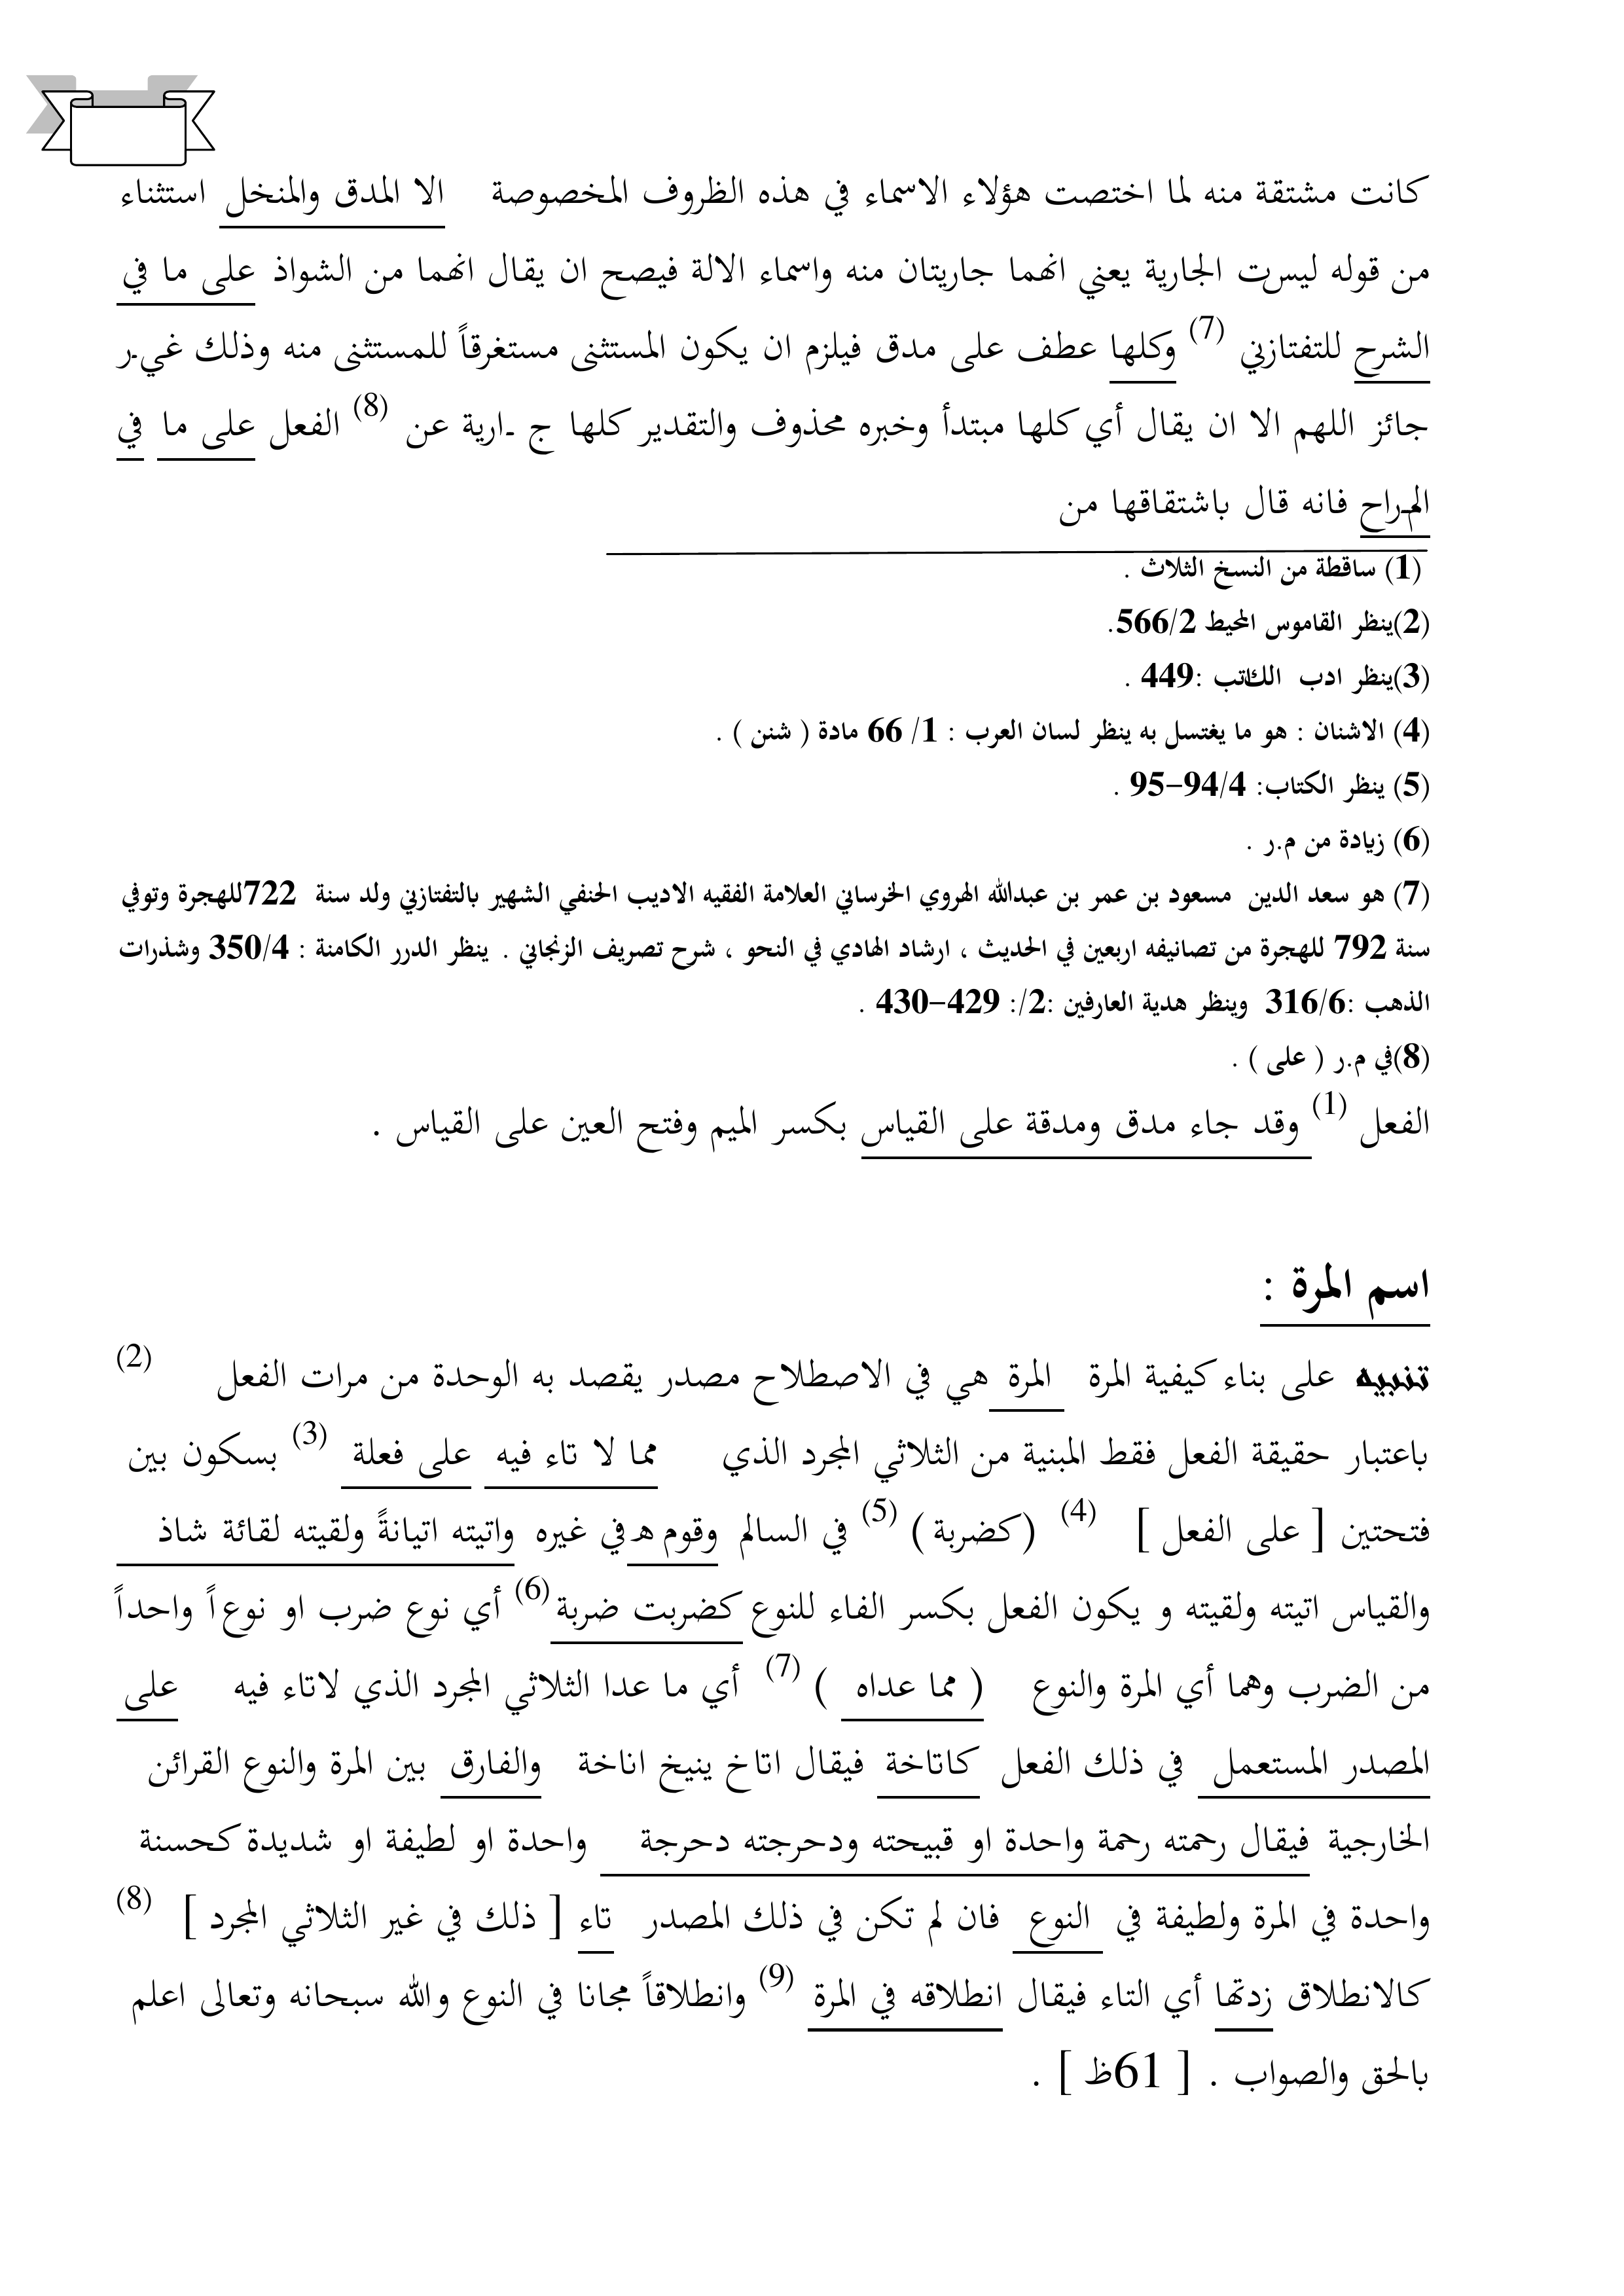 كانت مشتقة منه لما اختصت هؤلاء الاسماء في هذه الظروف المخصوصة الا المدق والمنخل استثناء
من قوله ليست الجارية يعني انهما جاريتان منه واسماء الالة فيصح ان يقال انهما من الشواذ على ما في
الشرح للتفتازني (7) وكلها عطف على مدق فيلزم ان يكون المستثنى مستغرقاً للمستثنى منه وذلك غيـر
جائز اللهم الا ان يقال أي كلها مبتدأ وخبره محذوف والتقدير كلها ج ـارية عن (8) الفعل على ما في
المـراح فانه قال باشتقاقها من
(1) ساقطة من النسخ الثلاث .
(2)ينظر القاموس المحيط 566/2.
(3)ينظر ادب الكاتب :449 .
(4) الاشنان : هو ما يغتسل به ينظر لسان العرب : 1/ 66 مادة ( شنن ) .
(5) ينظر الكتاب: 94/4–95 .
(6) زيادة من م.ر .
(7) هو سعد الدين مسعود بن عمر بن عبدالله الهروي الخرساني العلامة الفقيه الاديب الحنفي الشهير بالتفتازني ولد سنة 722للهجرة وتوفي
سنة 792 للهجرة من تصانيفه اربعين في الحديث ، ارشاد الهادي في النحو ، شرح تصريف الزنجاني . ينظر الدرر الكامنة : 350/4 وشذرات
الذهب :316/6 وينظر هدية العارفين :2/: 429–430 .
(8)في م.ر ( على ) .
الفعل (1) وقد جاء مدق ومدقة على القياس بكسر الميم وفتح العين على القياس .
اسم المرة :
تنبيه على بناء كيفية المرة المرة هي في الاصطلاح مصدر يقصد به الوحدة من مرات الفعل (2)
باعتبار حقيقة الفعل فقط المبنية من الثلاثي المجرد الذي مما لا تاء فيه على فعلة (3) بسكون بين
فتحتين [ على الفعل ] (4) (كضربة ) (5) في السالم وقوم هـ في غيره واتيته اتيانةً ولقيته لقائة شاذ
والقياس اتيته ولقيته و يكون الفعل بكسر الفاء للنوع كضربت ضربة(6) أي نوع ضرب او نوعاً واحداً
من الضرب وهما أي المرة والنوع ( مما عداه ) (7) أي ما عدا الثلاثي المجرد الذي لاتاء فيه على
المصدر المستعمل في ذلك الفعل كاتاخة فيقال اتاخ ينيخ اناخة والفارق بين المرة والنوع القرائن
الخارجية فيقال رحمته رحمة واحدة او قبيحته ودحرجته دحرجة واحدة او لطيفة او شديدة كحسنة
واحدة في المرة ولطيفة في النوع فان لم تكن في ذلك المصدر تاء [ ذلك في غير الثلاثي المجرد ] (8)
كالانطلاق زدتها أي التاء فيقال انطلاقه في المرة (9) وانطلاقاً مجانا في النوع والله سبحانه وتعالى اعلم
بالحق والصواب . [ 61ظ ] .